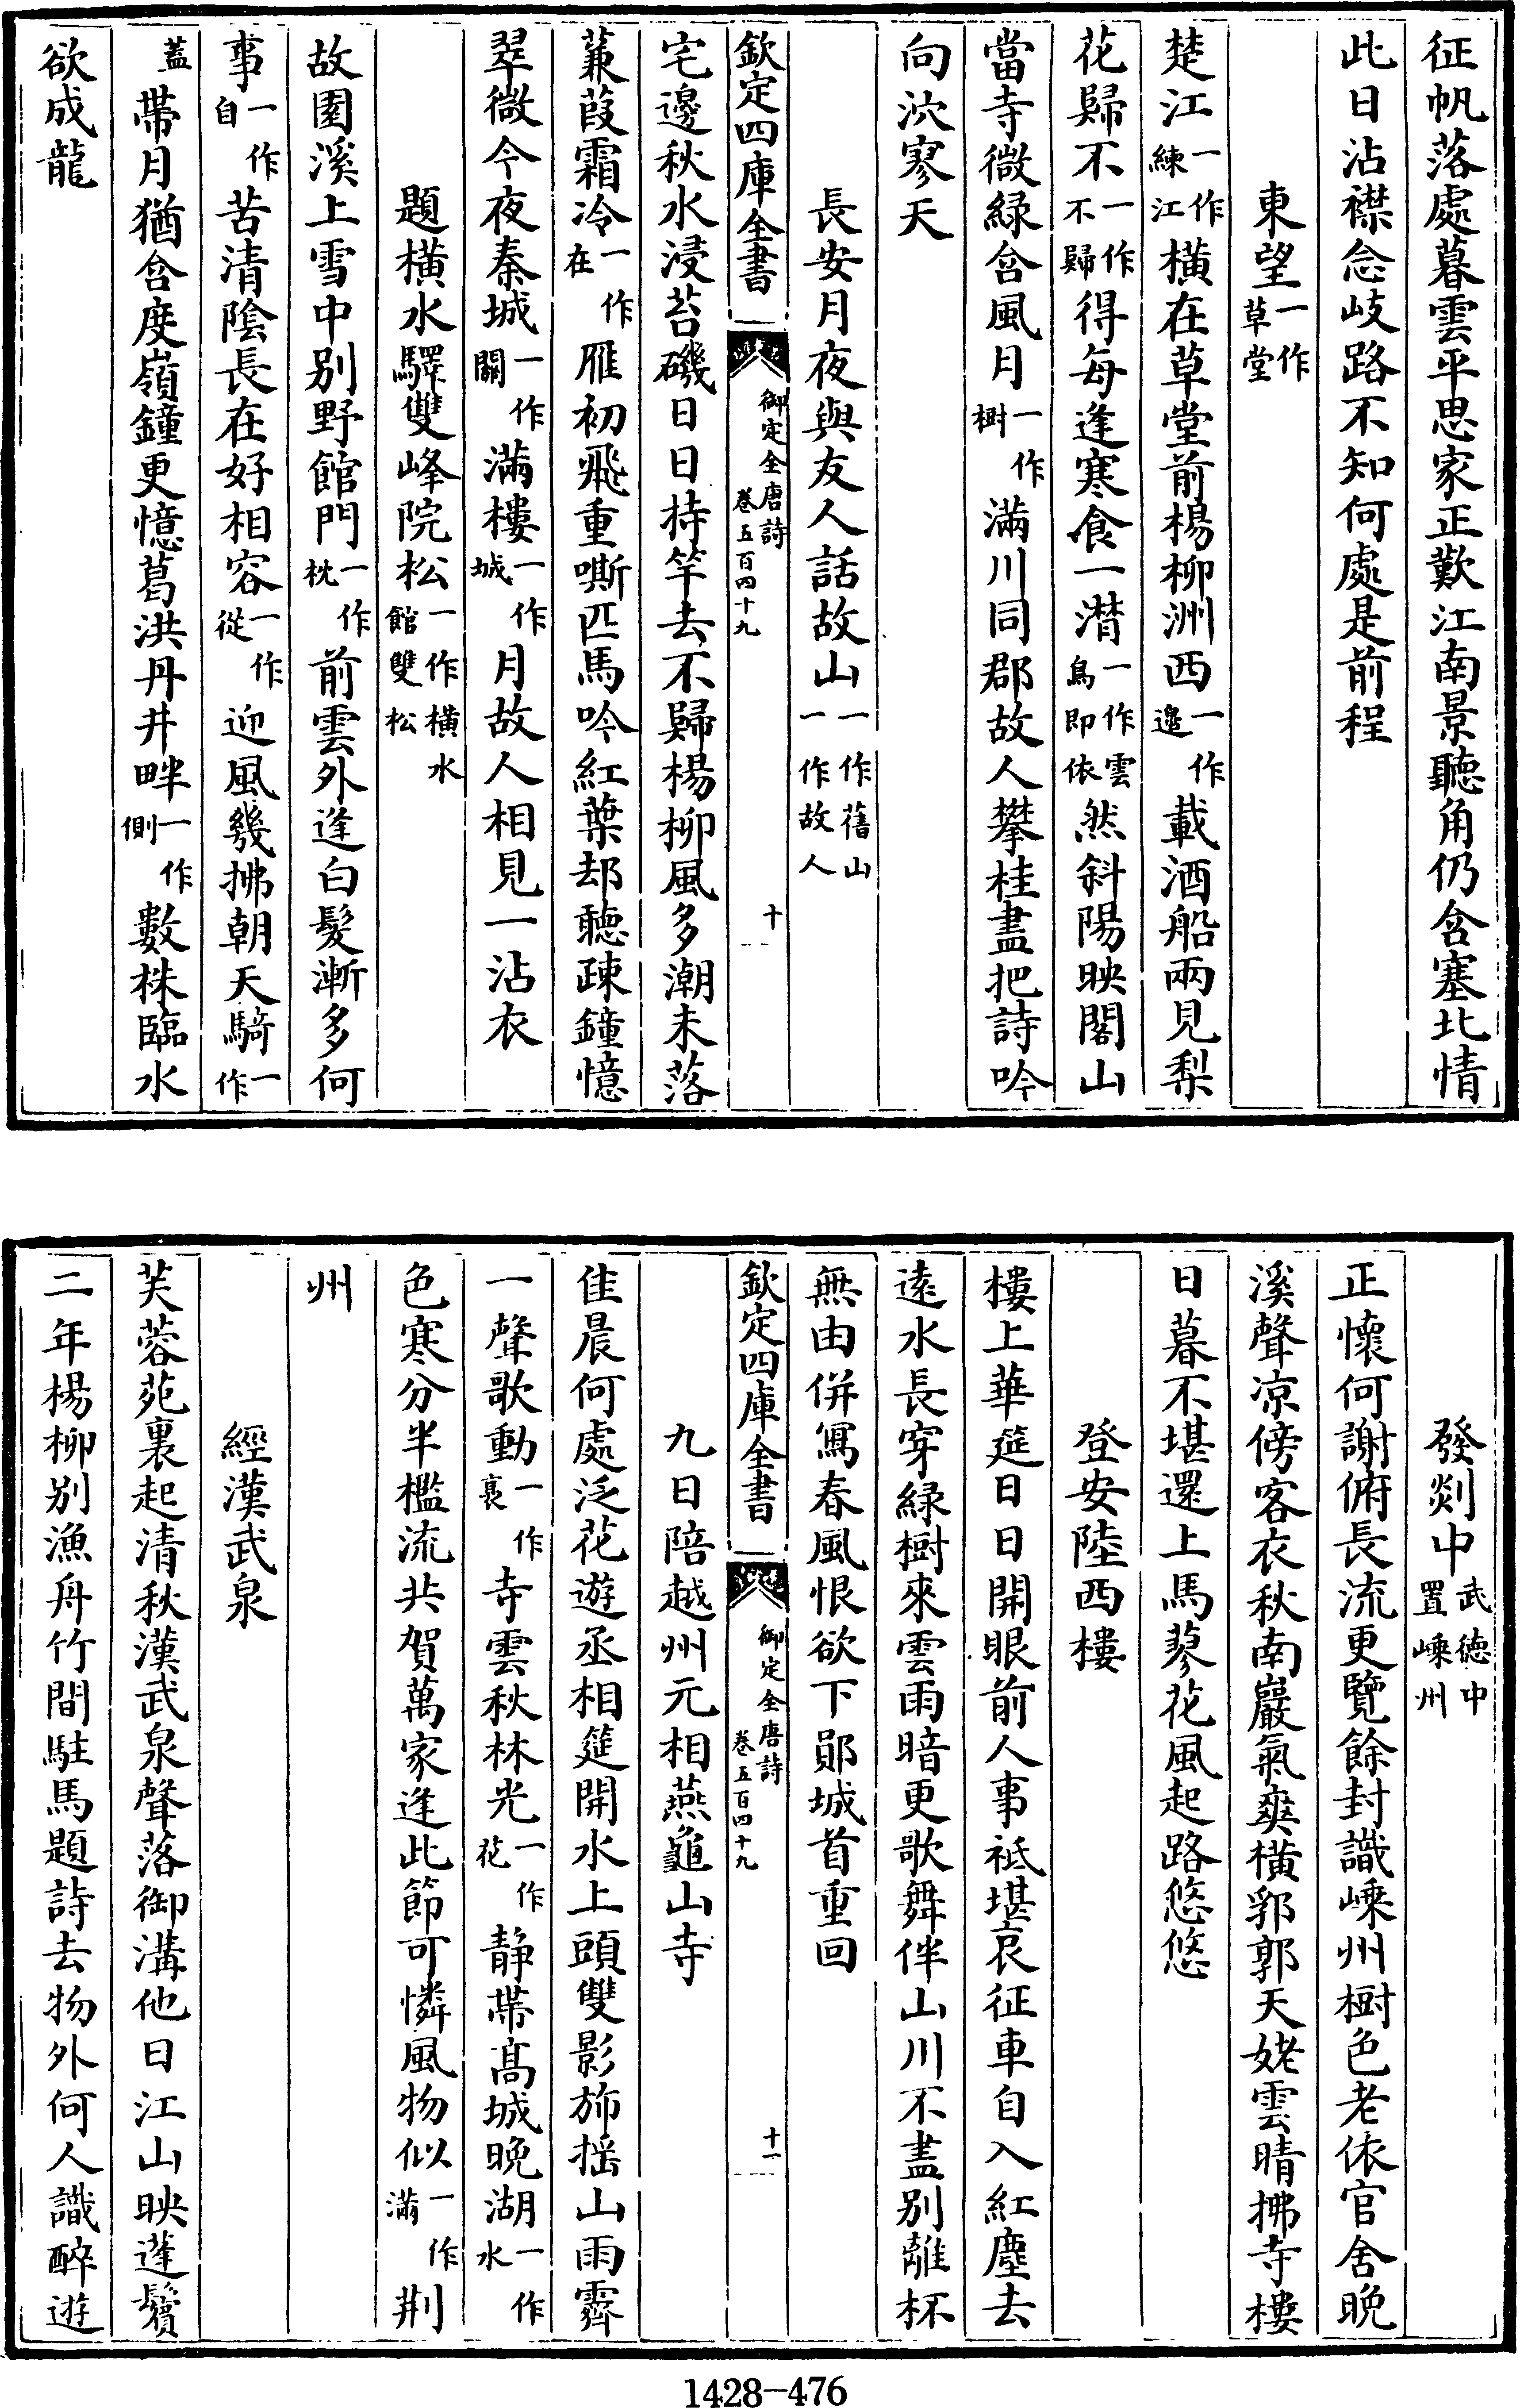 征帆落處暮雲平思家正歎江南景聽角仍含塞北情
此日沾襟念岐路不知何處是前程
東望一作草堂
楚江一作練江橫在草堂前楊柳洲西一作邉載酒船兩見梨
花歸不一作不歸得每逢寒食一潸一作雲鳥即依然斜陽映閣山
當寺微緑含風月一作樹滿川同郡故人攀桂盡把詩吟
向泬寥天
長安月夜與友人話故山一作舊山一作故人
欽定四庫全書
御定全唐詩
卷五百四十九
十
宅邊秋水浸苔磯日日持竿去不歸楊柳風多潮未落
蒹葭霜冷一作在雁初飛重嘶匹馬吟紅葉却聽疎鐘憶
翠微今夜秦城一作關滿樓一作城月故人相見一沾衣
題橫水驛雙峰院松一作橫水館雙松
故園溪上雪中別野館門一作枕前雲外逢白髮漸多何
事一作自苦清陰長在好相容一作從迎風幾拂朝天騎一作
蓋帶月猶含度嶺鐘更憶葛洪丹井畔一作側數株臨水
欲成龍
發剡中武德中置嵊州
正懷何謝俯長流更覽餘封識嵊州樹色老依官舍晚
溪聲凉傍客衣秋南巖氣爽橫郛郭天姥雲晴拂寺樓
日暮不堪還上馬蓼花風起路悠悠
登安陸西樓
樓上華筵日日開眼前人事祗堪哀征車自入紅塵去
遠水長穿緑樹來雲雨暗更歌舞伴山川不盡別離杯
無由併寫春風恨欲下鄖城首重回
欽定四庫全書
御定全唐詩
卷五百四十九
十一
九日陪越州元相燕龜山寺
佳晨何處泛花遊丞相筵開水上頭雙影斾揺山雨霽
一聲歌動一作裊寺雲秋林光一作花静帶髙城晚湖一作水
色寒分半檻流共賀萬家逢此節可憐風物似一作滿荆
州
經漢武泉
芙蓉苑裏起清秋漢武泉聲落御溝他日江山映蓬鬢
二年楊柳別漁舟竹間駐馬題詩去物外何人識醉遊
1428-476